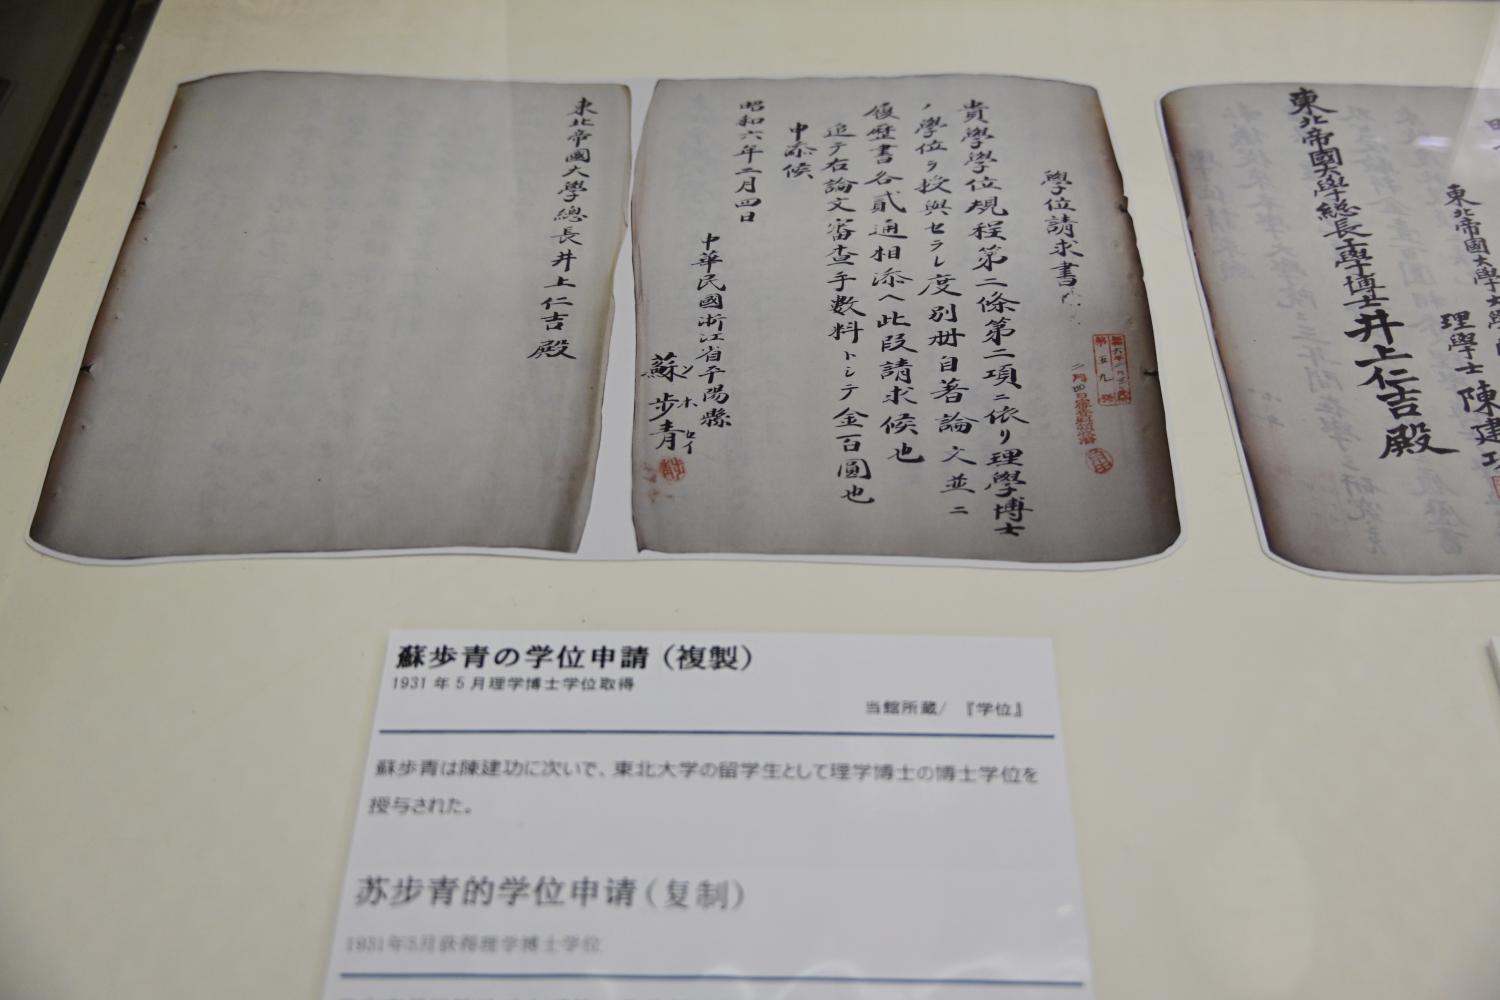 學位請求書
貴學學位規程第二條第二項ニ依リ理學博士
ノ學位ヲ授與セラレ度別冊自著論文並ニ
履歷書各貳通相添ヘ此段請求候也
追テ右論文審查手數料トシテ金百圓也
申添候
昭和六年二月四日
中華民國浙江省平陽縣
蘇步青
ソホセイ
東北帝國大學總長井上仁吉殿
東北帝國大學
理學士陳建功
東北帝國大學総長工學博士井上仁吉殿
蘇歩青の学位申請（複製）
1931年5月理学博士学位取得
当館所蔵/ 『学位』
蘇歩青は陳建功に次いで、東北大学の留学生として理学博士の博士学位を
授与された。
苏步青的学位申请（复制）
1931年5月获得理学博士学位